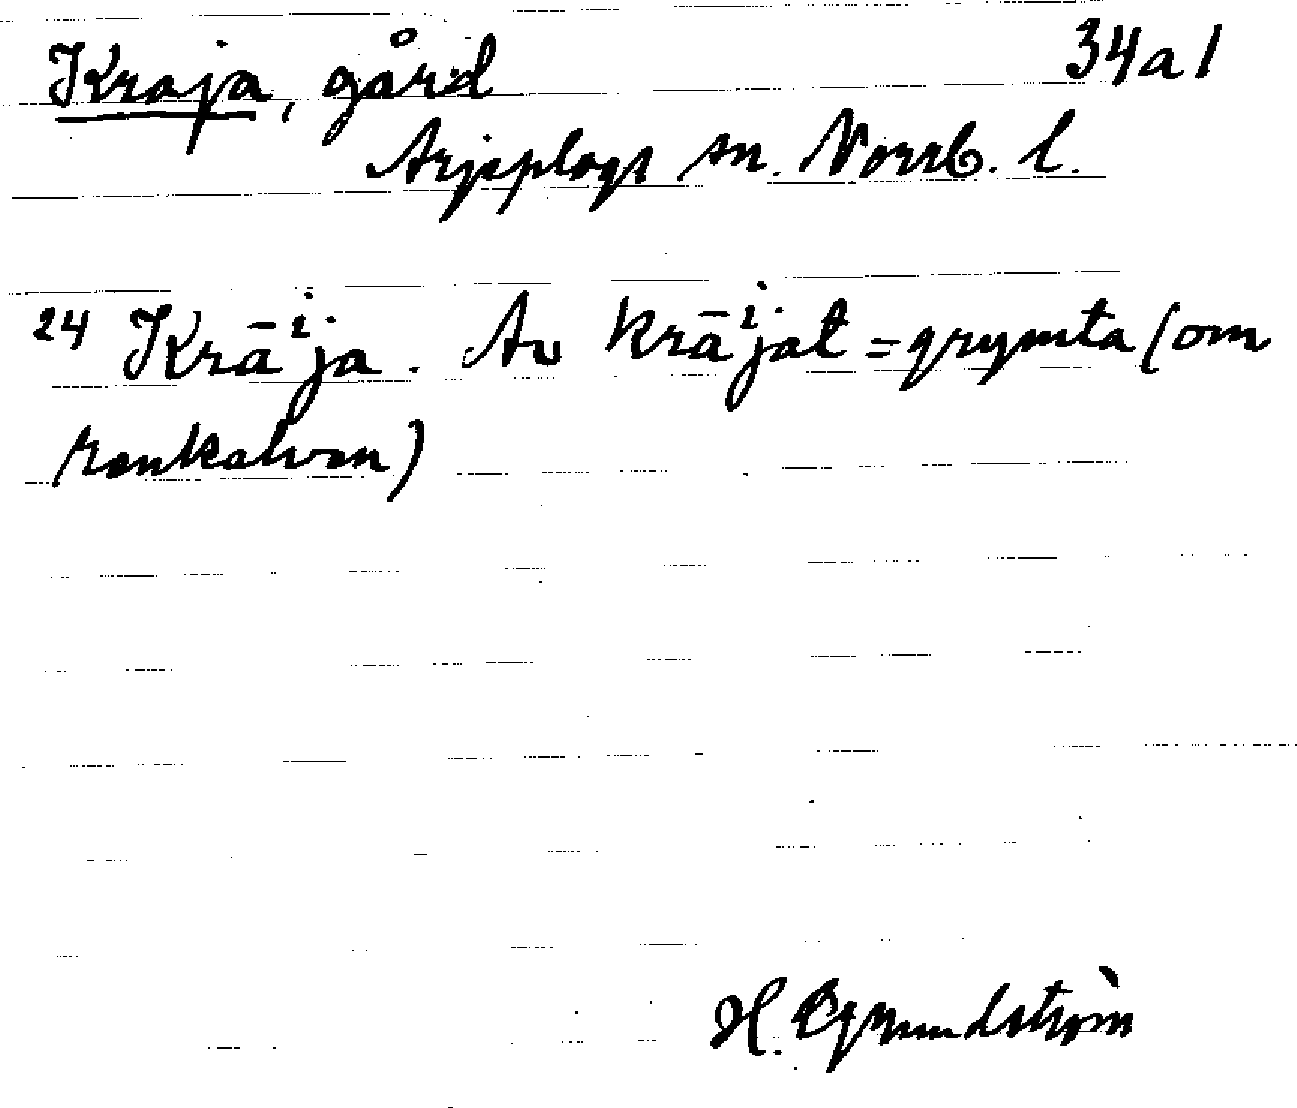 Kraja, gård 34a1
Arjeplogs sn. Norrb. l.
24 Krāⁱja. Av krāⁱjat = grymta (om
renkalven)
H. Grundström